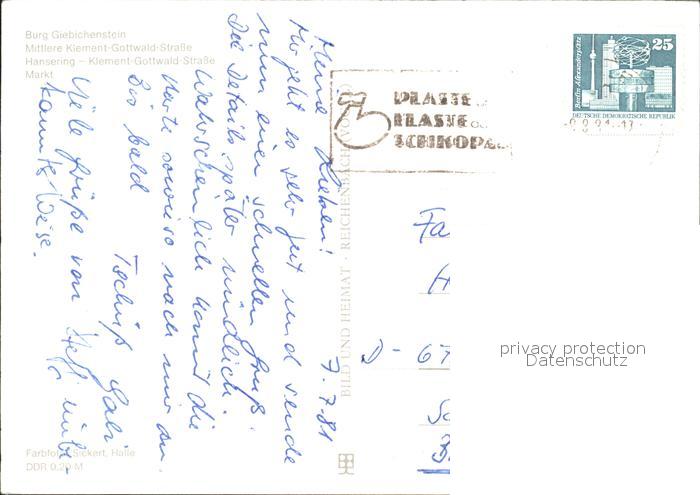 Burg Giebichenstein
Mittlere Klement-Gottwald-Straße
Hansering – Klement-Gottwald-Straße
Markt
7.7.81
Meine Lieben!
Mir geht es sehr gut und sende
nun einen schnellen Gruß.
Die Details später mündlich.
Wahrscheinlich kommt die
Karte sowieso nach mir an.
Bis bald Tschüß Gabi
Viele Grüße von Steffi unbe-
kannter Weise.
Farbfoto: Sickert, Halle
DDR 0,20 M
BILD UND HEIMAT · REICHENBACH
PLASTE
ELASTE
SCHKOPAU
25
Berlin, Alexanderplatz
DEUTSCHE DEMOKRATISCHE REPUBLIK
Fa
H
D - 67
privacy protection
Datenschutz